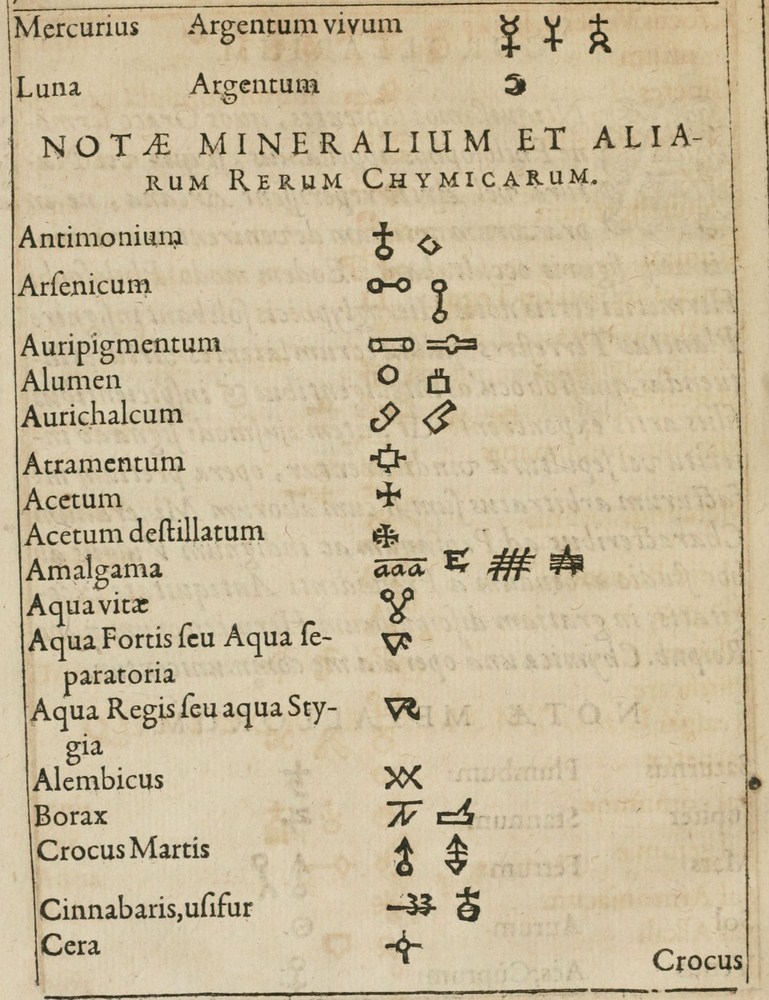 Mercurius Argentum vivum ☿
Luna Argentum ☽
NOTÆ MINERALIUM ET ALIA-
RUM RERUM CHYMICARUM.
Antimonium
Arſenicum
Auripigmentum
Alumen
Aurichalcum
Atramentum
Acetum
Acetum deſtillatum
Amalgama aaa
Aqua vitæ
Aqua Fortis ſeu Aqua ſe-
paratoria
Aqua Regis ſeu aqua Sty-
gia
Alembicus
Borax
Crocus Martis
Cinnabaris,uſifur
Cera
Crocus